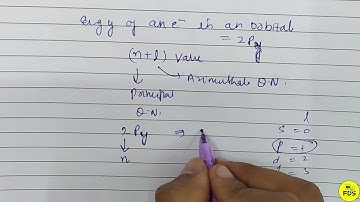 Engy of an e⁻ in an orbital
= 2Py
(n+l) value
↓ → Azimuthal Q.N.
Principal
Q.N.
2Py ⇒
↓
n
l
s = 0
p = 1
d = 2
f = 3
FDS